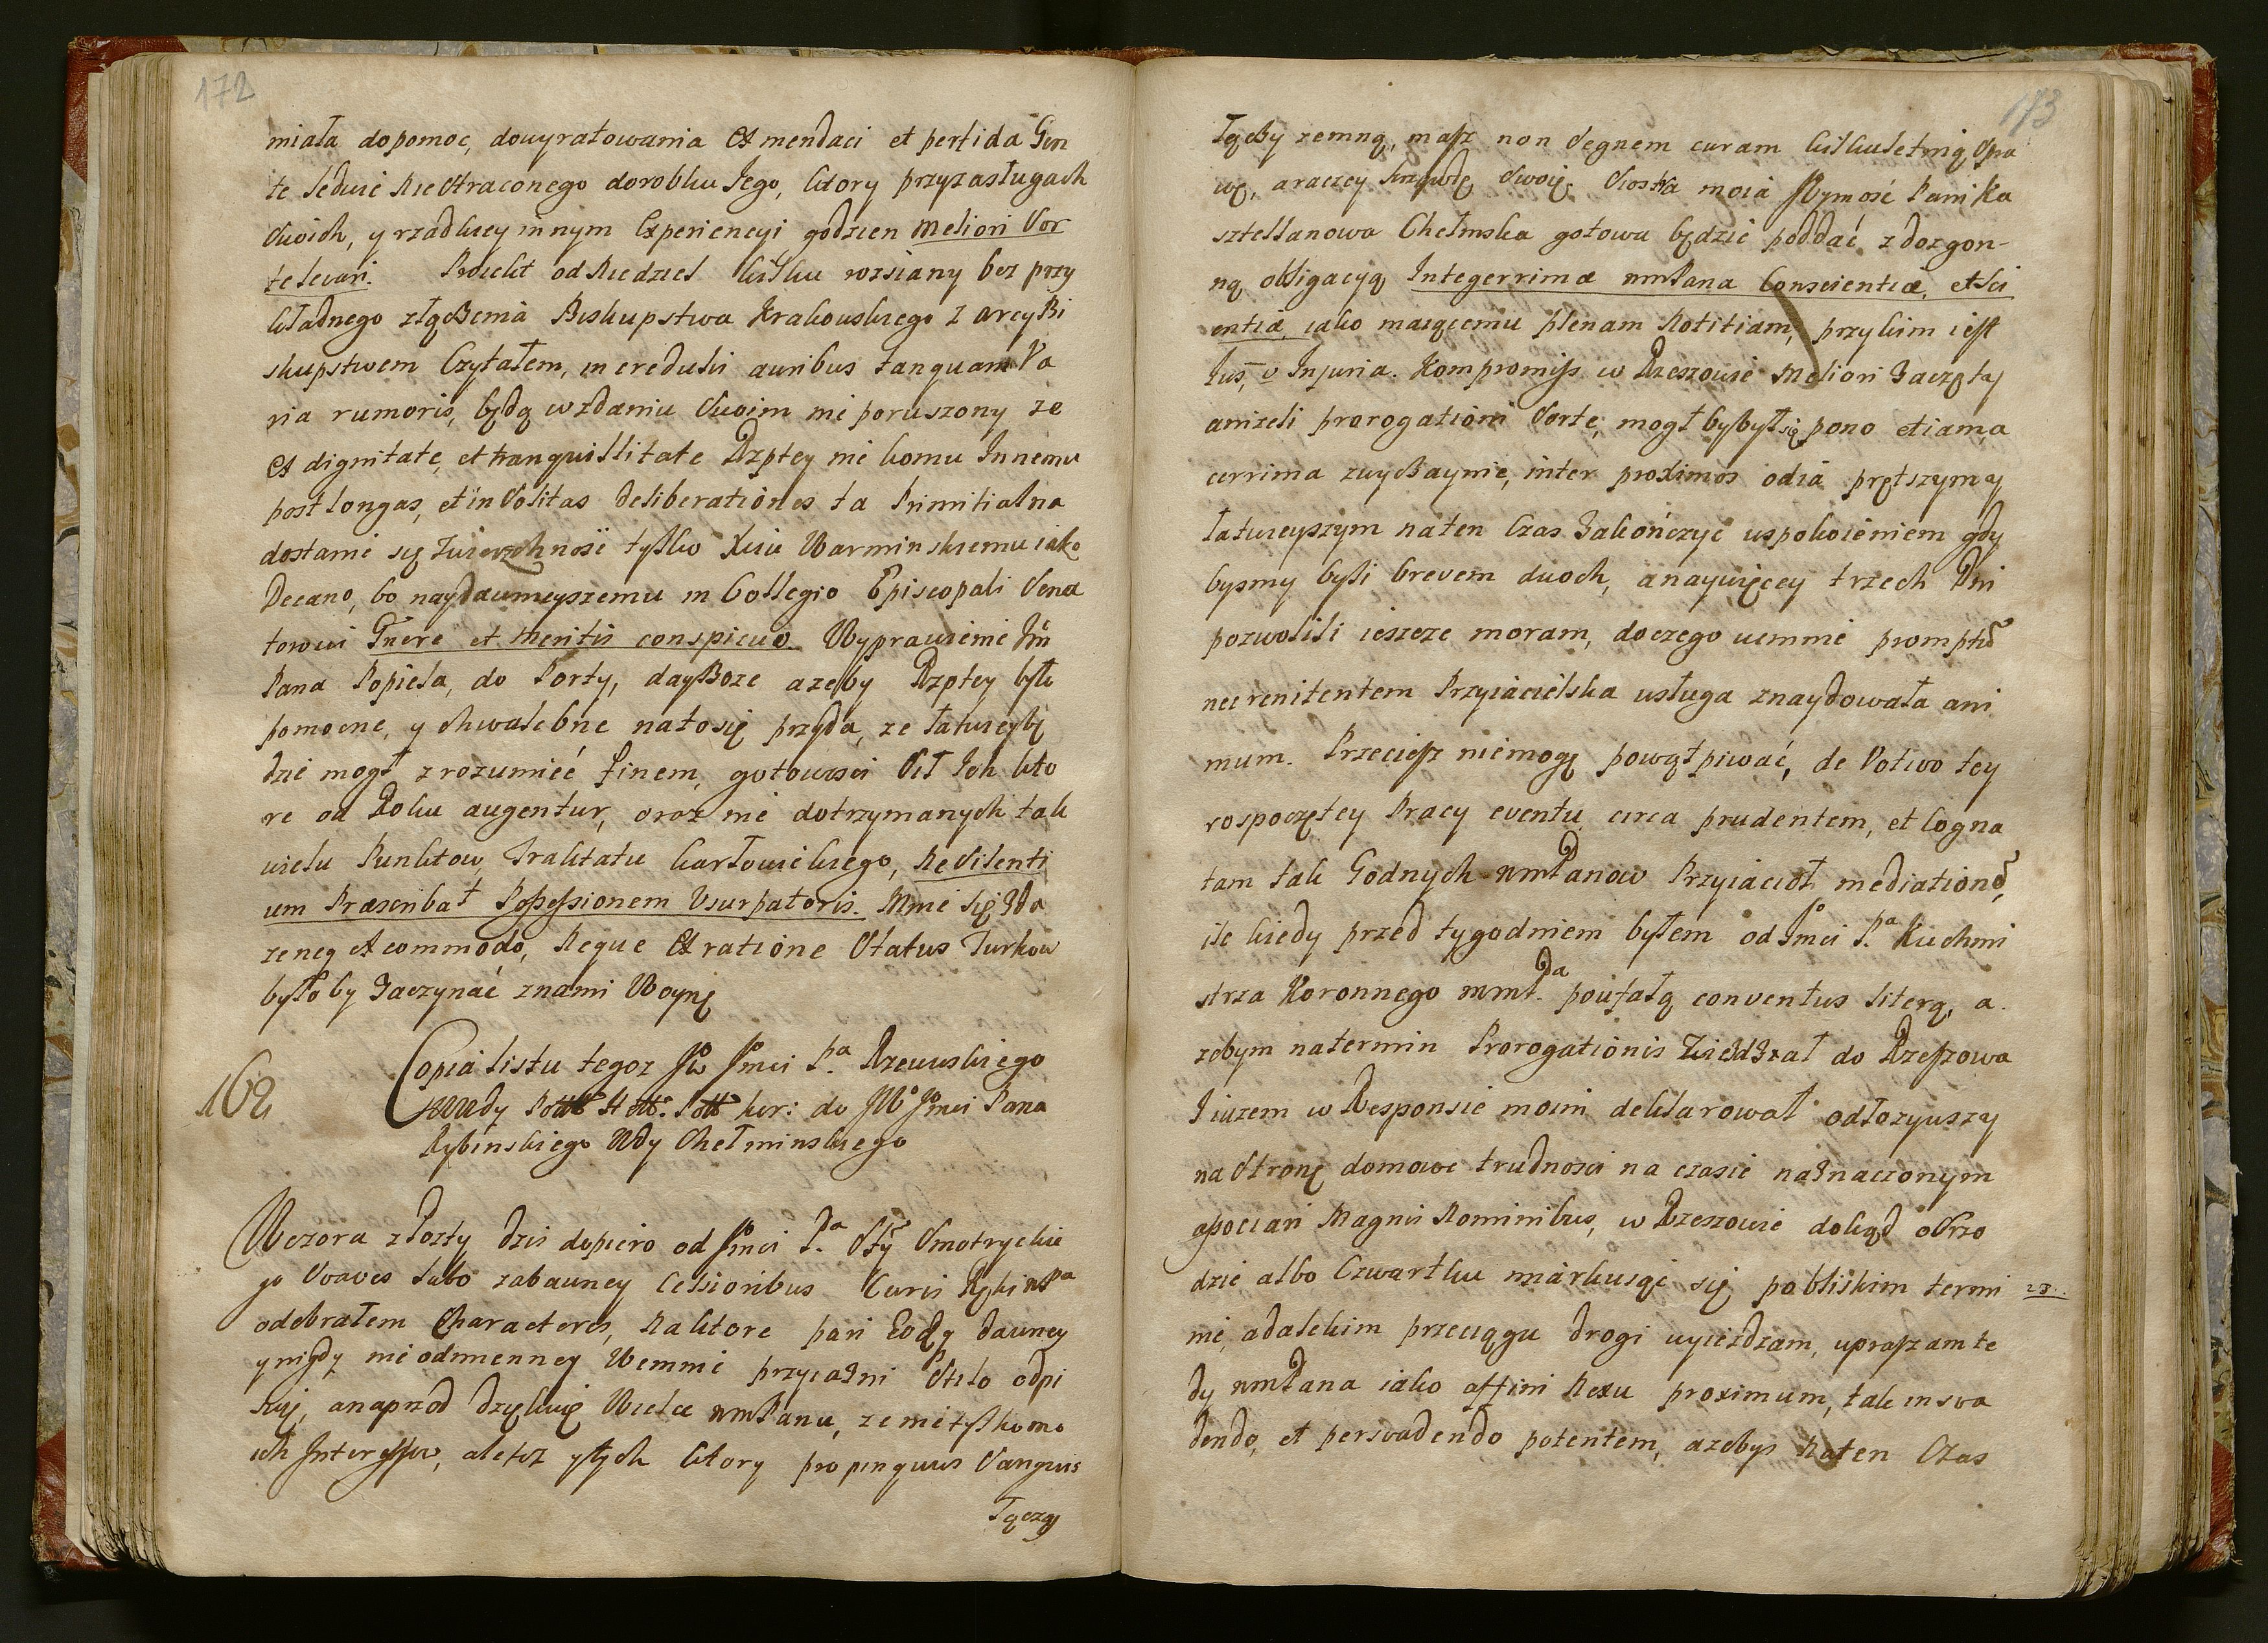 172
miała dopomoc, dowyratowania ex mendaci et perfida Gen
te ledwie nie straconego dorobku Jego, ktory przy zasługach
swoich, y rzadkiey innym Experiencyi godzien meliori Sor
te levari. Proiekt od Niedziel kilku rozsiany bez przy
kładnego złączenia Biskupstwa Krakowskiego z arcyBi
skupstwem Czytałem, increduli auribus tanquam Va
ria rumoris, będą w zdaniu swoim nie poruszony ze
ex dignitate, et tranquillitate Rzptey nie komu Innemu
post longas, et insolitas deliberationes ta Primitialna
dostanie się zwierzchność tylko Xciu Warminskiemu iako
Decano, bo naydawnieyszemu in Collegio Episcopali Sena
towi Genere et meritis conspicuo. Wyprawienie Jm
Pana Popiela, do Porty, day Boze azeby Rzptey było
pomocne, y chwalebne na to się przyda, ze łatwiey bę
dzie mogł zrozumieć finem, gotowości Sił Ich kto
re od Roku augentur, oraz nie dotrzymanych tak
wielu Punktow, Traktatu karłowickiego, ne silenti
um Præscribat Possessionem Usurpatoris. Mnie się zda
ze neq ex commodo, neque ex ratione Status Turkow
było by zaczynać z nami Woynę
162 Copia listu tegoz JW Jmci Pa Rzewuskiego
Wdy Hett. Pol. kor: do JW Jmci Pana
Rybinskiego Wdy Chełminskiego
Wczora z Poczty dzis dopiero od Jmci Pa Stty Smotryckie
go Svaves lubo zabawney Cessioribus Curis Ręki WPa
odebrałem Characteres, na ktore pari Eodq dawney
y nigdy nie odmienney Wemnie przyiazni Stilo odpi
suię, a naprzod dziękuię Wielce WmPanu, ze nie tylko mo
ich Interessow, ale tez y tych ktory propinquus Sangvis
Tączy
173
Tączy zemną, masz non segnem curam kilkuletnią spra
wę, a raczey krzywdę swoię. Siostra moia JWymość Pani Ka
sztellanowa Chełmska gotowa będzie poddać z dozgon-
ną obligacyą Integerrimæ WmPana Conscientiæ, et Sci
entiæ, iako maiącemu plenam Notitiam, przy kim iest
Jus, v Injuria. Kompromiss w Rzeszowie Meliori zaczęty
anizeli prorogationi Sorte, mogł by był się pono etiam a
cerrima zwyczaynie, inter proximos odia prętszym y
łatwieyszym na ten Czas zakończyć uspokoieniem gdy
bysmy byli brevem dwoch, a naywięcey trzech Dni
pozwolili ieszcze moram, do czego wemnie promptu
nec renitentem Przyiacielska usługa znaydowała ani
mum. Przeciesz nie mogę powątpiwać, de Votivo tey
rospoczętey Pracy eventu circa prudentem, et Cogna
tam tak Godnych WmPanow Przyiacioł mediatione,
ile kiedy przed tygodniem byłem od Jmci Pa Kuchmi
strza Koronnego mmPa poufałą conventus literą, a
zebym na termin Prorogationis Ziezdzał do Rzeszowa
I iuzem w Responsie moim deklarował odłozywszy
na Stronę domowe trudności na czasie naznaczonym
associari Magnis Nominibus, w Rzeszowie dokąd o Srzo
dzie albo Czwartku miarkuiąc się po bliskim termi
nie, a dalekim przeciągu drogi wyieżdzam, upraszam te
dy WmPana iako affini Nexu proximum, tak in sva
dendo, et persvadendo potentem, azebys na ten Czas